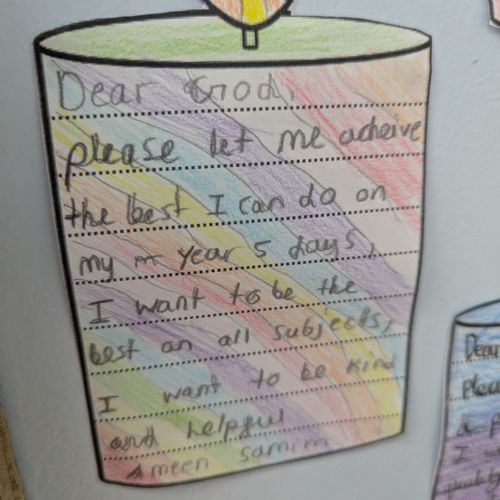 Dear God,
please let me acheive
the best I can do on
my year 5 days,
I want to be the
best on all subjects,
I want to be kind
and helpful
Ameen samim
Dear
plea
I w